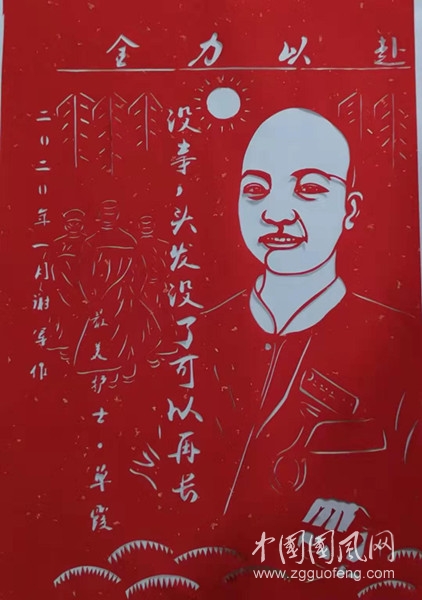 全力以赴
没事，头发没了可以再长
最美护士·单霞
二〇二〇年一月谢军作
中國國風网
www.zgguofeng.com